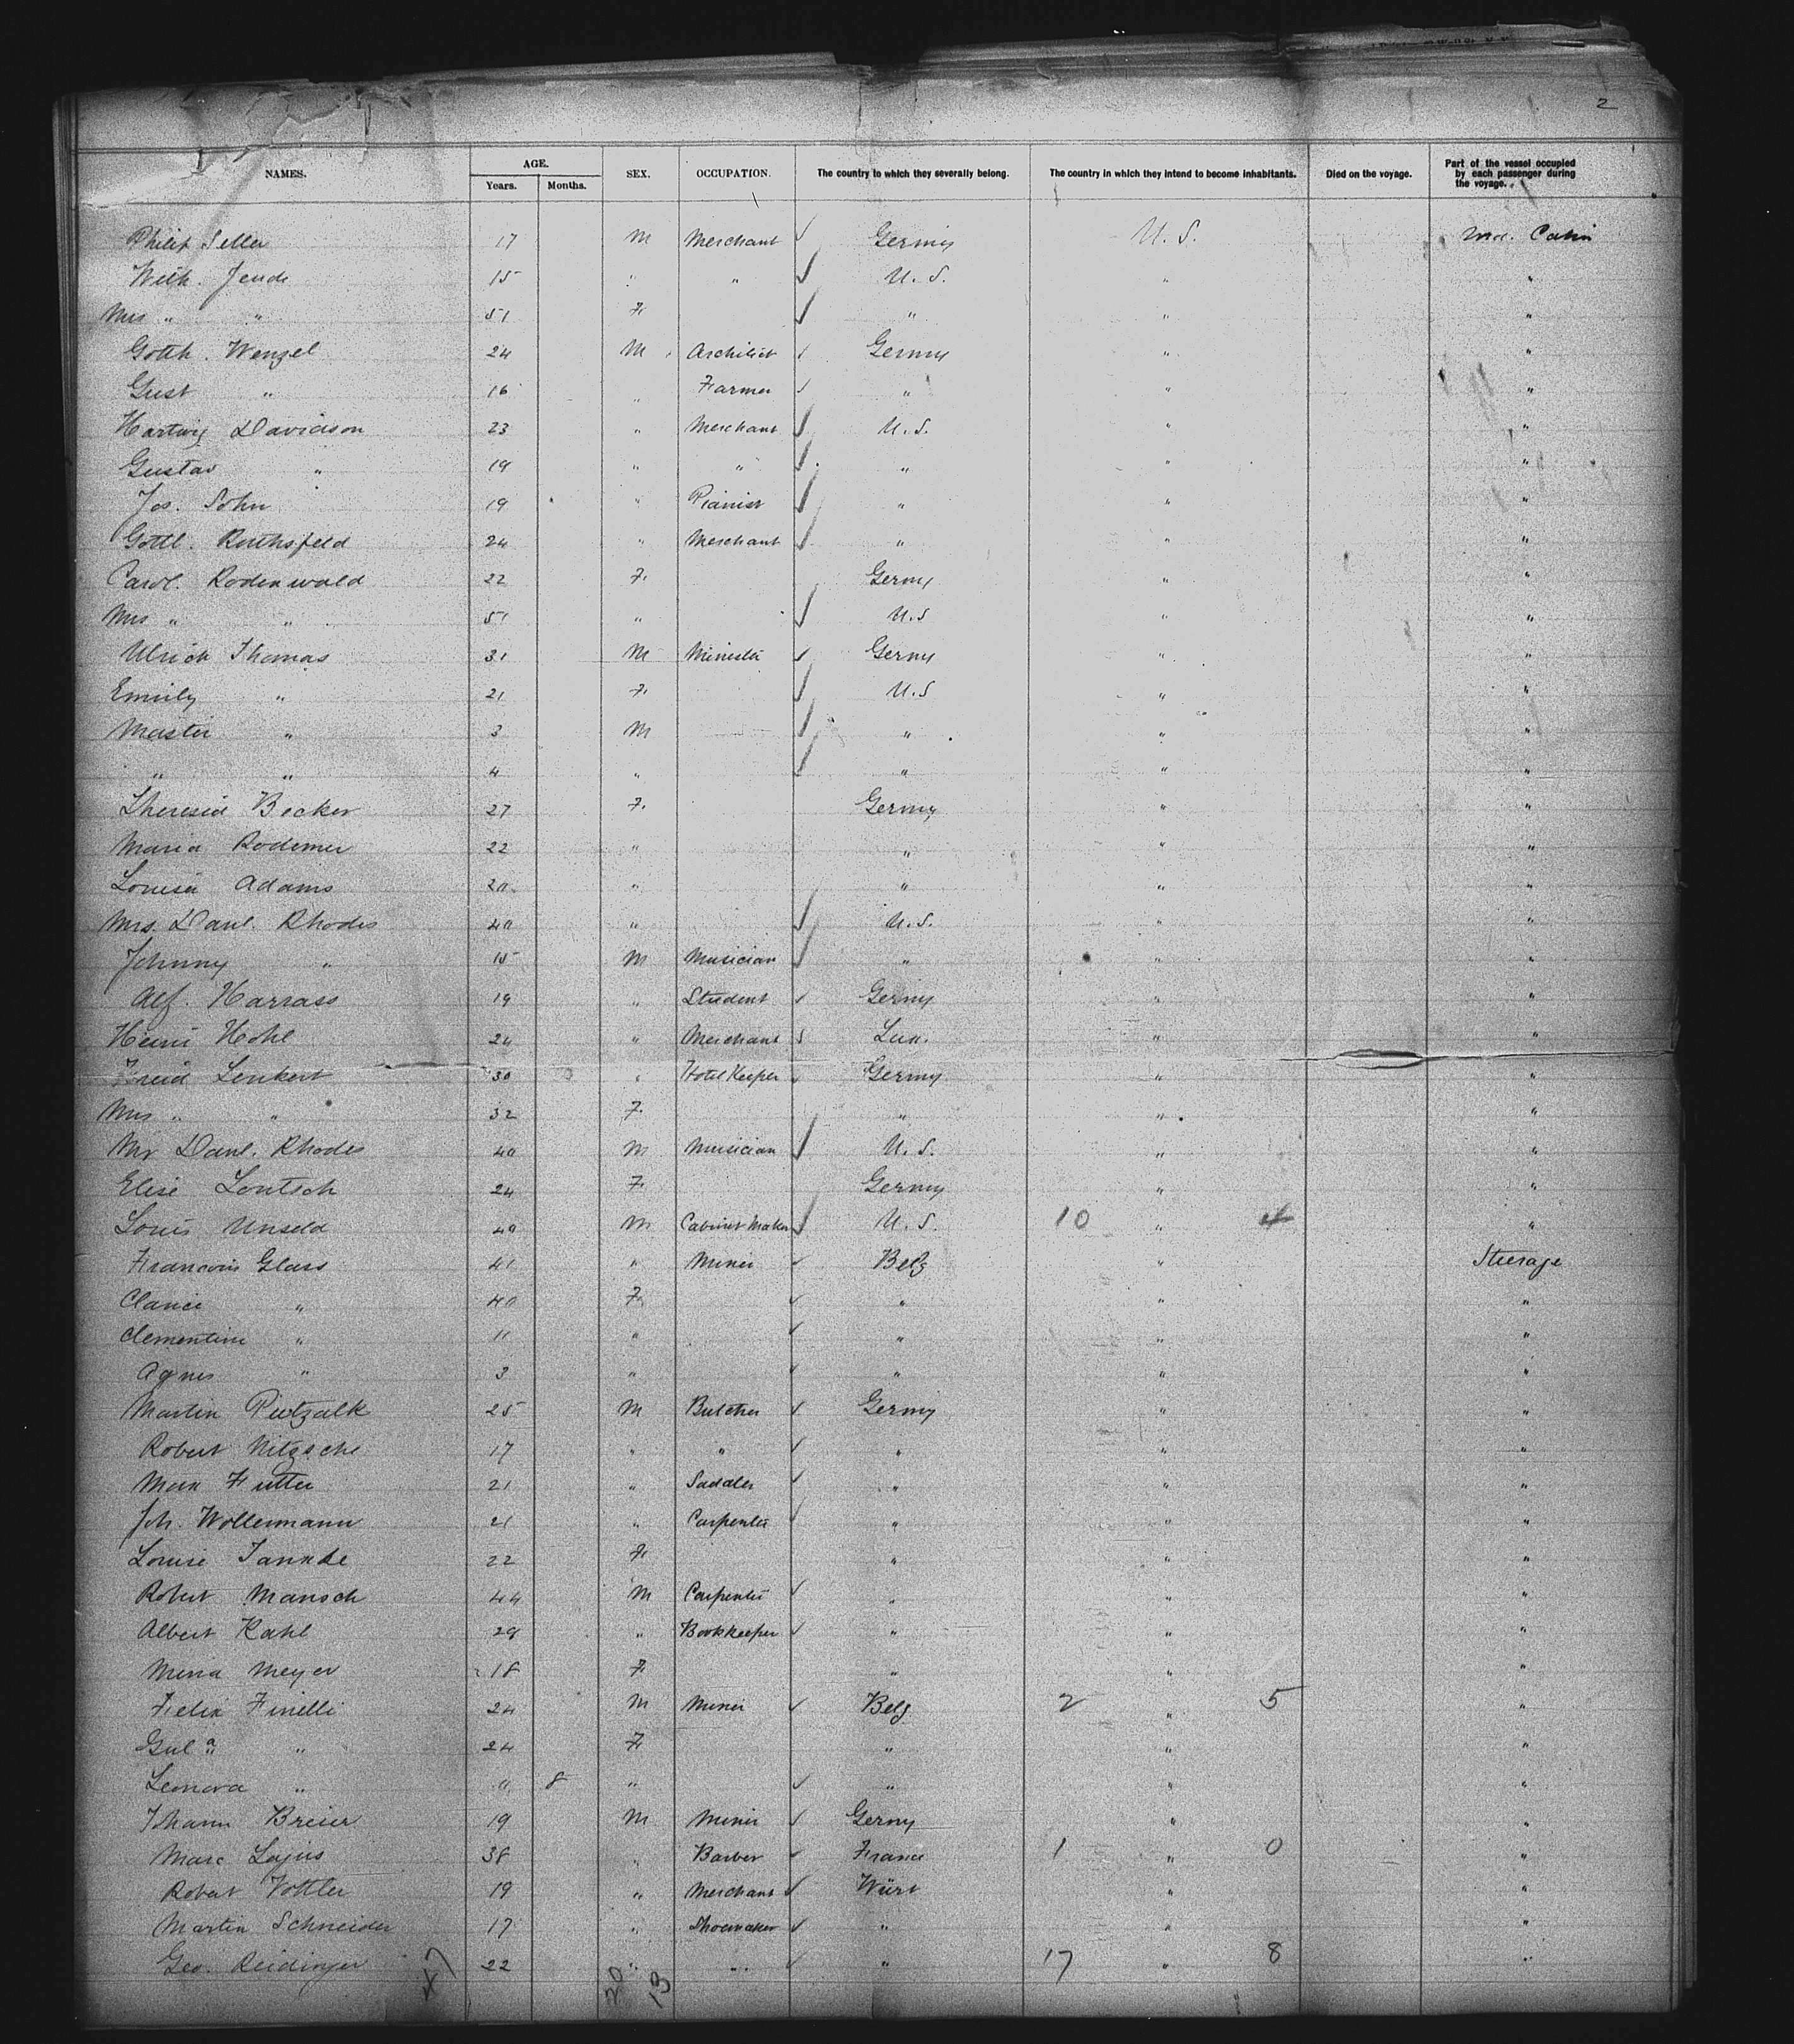 2
NAMES. AGE. Years. Months. SEX. OCCUPATION. The country to which they severally belong. The country in which they intend to become inhabitants. Died on the voyage. Part of the vessel occupied by each passenger during the voyage.
Philip Seller 17 M Merchant ✓ Germy U. S. Cabin
Wilh. Jende 15 " " ✓ U. S. " "
Mrs " " 51 F. ✓ " " "
Gotth. Wenzel 24 M Architect ✓ Germy " "
Gust " 16 " Farmer ✓ " " "
Hartwig Davidson 23 " Merchant ✓ U. S. " "
Gustav " 19 " " ✓ " " "
Jos. Sohn 19 " Pianist ✓ " " "
Gottl. Rothsfeld 24 " Merchant ✓ " " "
Carol. Rodenwald 22 F. Germy " "
Mrs " " 51 " ✓ U. S " "
Ulrich Thomas 31 M Minister ✓ Germy " "
Emily " 21 F. ✓ U. S " "
Master " 3 M ✓ " " "
" " 4 " ✓ " " "
Theresia Becker 27 F. Germy " "
Maria Rodemer 22 " " " "
Louisa Adams 20 " " " "
Mrs. Danl. Rhodes 40 " ✓ U. S. " "
Johnny " 15 M Musician ✓ " " "
Alf. Harrass 19 " Student ✓ Germy " "
Henri Hohl 24 " Merchant Lux. " "
Lenkert 30 " Hotel Keeper ✓ Germy " "
Mrs " " 32 F. " " "
Mr Danl. Rhodes 40 M Musician ✓ U. S. " "
Elise Loutsch 24 F. Germy " "
Louis Unseld 40 M Cabinet Maker ✓ U. S. 10 " 4 "
Francois Glass 41 " Miner ✓ Belg " Steerage
" 40 F. ✓ " " "
Clementine " 11 " ✓ " " "
Agnes " 3 " ✓ " " "
Martin Pietzalk 25 M Butcher ✓ Germy " "
Robert Nitzsche 17 " " ✓ " " "
Max Futter 21 " Saddler ✓ " " "
Joh. Wollermann 21 " Carpenter ✓ " " "
Louise 22 F. " " "
Robert Mansch 44 M Carpenter ✓ " " "
Albert Kahl 29 " Bookkeeper ✓ " " "
Meyer 18 F. " " "
Felix Finelli 24 M Miner ✓ Belg 2 " 5 "
" 24 F. " " "
Leonora " " 8 " ✓ " " "
Johann Breier 19 M Miner ✓ Germy " "
Marc 38 " Barber ✓ France 1 " 0 "
Robert Vottler 19 " Merchant ✓ Würt " "
Martin Schneider 17 " Shoemaker ✓ " " "
Geo. Reidinger 22 " " ✓ " 17 " 8 "
47 13